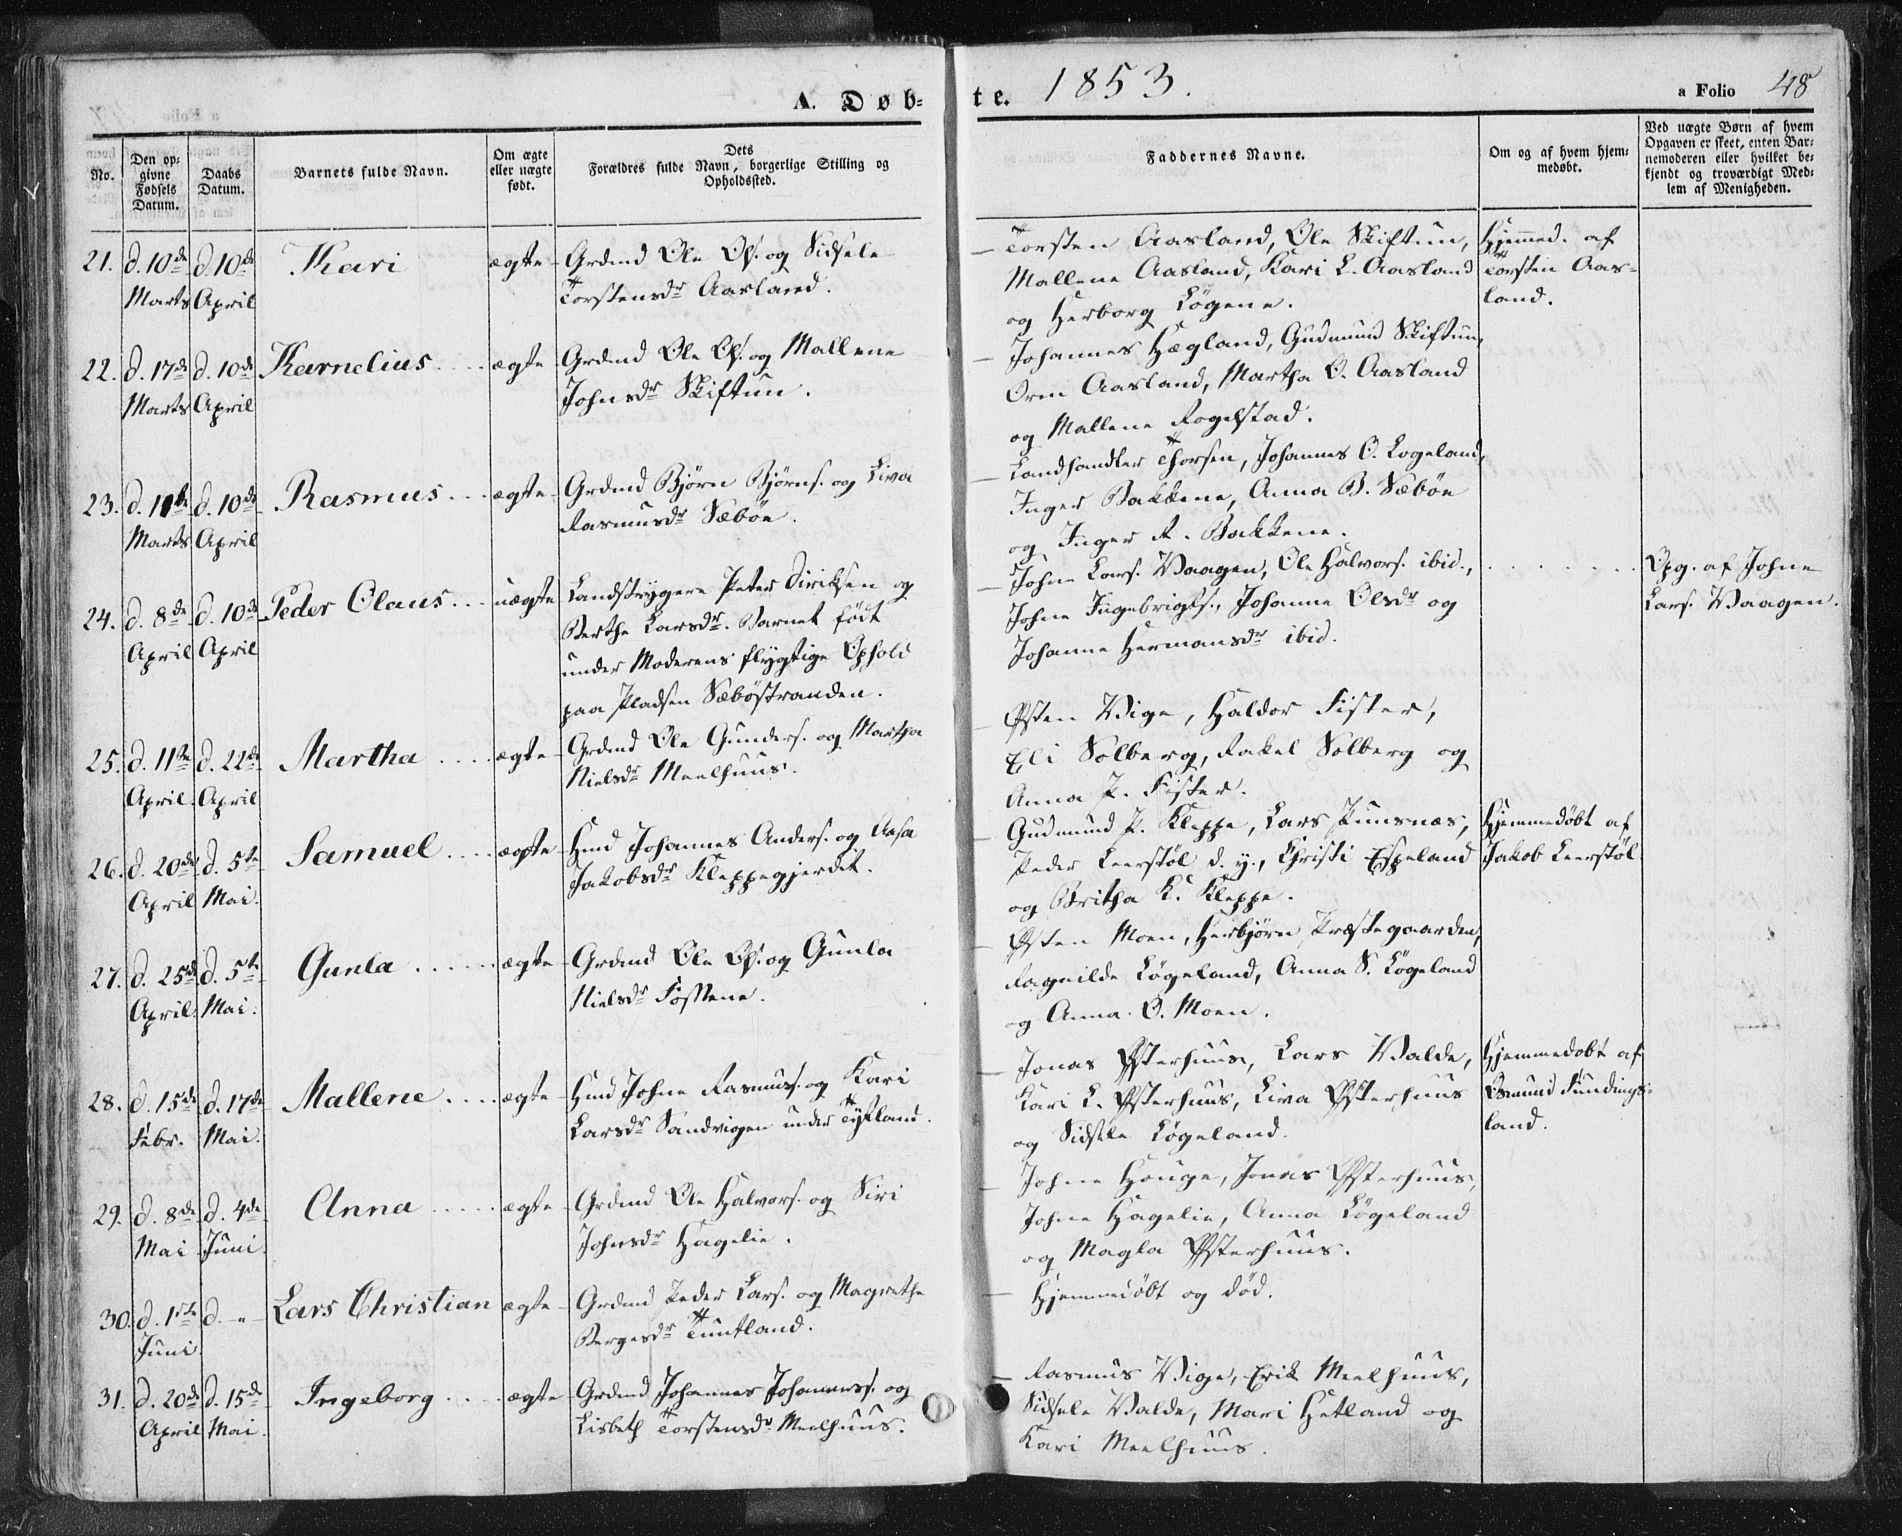 A. Døb-
te. 1853.
a Folio 48
No.
Den op-
givne
Fødsels
Datum.
Daabs
Datum.
Barnets fulde Navn.
Om ægte
eller uægte
født.
Dets
Forældres fulde Navn, borgerlige Stilling og
Opholdssted.
Faddernes Navne.
Om og af hvem hjem-
medøbt.
Ved uægte Børn af hvem
Opgaven er skeet, enten Bar-
nemoderen eller hvilket be-
kjendt og troværdigt Med-
lem af Menigheden.
21. d. 10de Marts d. 10de April Kari ægte
Grdmd Ole Ols. og Sidsele
Torstensdr Aasland.
Torsten Aasland, Ole Skiftun,
Mallene Aasland, Kari L. Aasland
og Herborg Løgene.
Hjemmed. af
Torsten Aas-
land.
22. d. 17de Marts d. 10de April Karnelius .... ægte
Grdmd Ole Ols. og Mallene
Johnsdr Skiftun.
Johannes Hægland, Gudmund Skiftun,
Orm Aasland, Martha O. Aasland
og Mallene Fogelstad.
23. d. 11te Marts d. 10de April Rasmus ... ægte
Grdmd Bjørn Bjørns. og Liva
Rasmusdr Sæbøe.
Landhandler Thorsen, Johannes O. Logeland,
Inger Bakkene, Anna B. Sæbøe
og Inger R. Bakkene.
24. d. 8de April d. 10de April Peder Olaus ... uægte
Landstrygere Peter Diriksen og
Berthe Larsdr. Barnet født
under Moderens flygtige Ophold
paa Pladsen Sæbøstranden.
Johne Lars. Vaagen, Ole Halvors. ibid.,
Johne Ingebrigts., Johanne Olsdr og
Johanne Hermansdr ibid.
Opg. af Johne
Lars. Vaagen.
25. d. 11te April d. 22de April Martha .... ægte
Grdmd Ole Gunders. og Martha
Nielsdr Meelhuus.
Østen Vige, Haldor Fister,
Eli Solberg, Rakel Solberg og
Anna P. Fister.
26. d. 20de April d. 5te Mai. Samuel .... ægte
Hmd Johannes Anders. og Aasa
Jakobsdr Kleppegjerdet.
Gudmund P. Kleppe, Lars Puntsnæs,
Peder Leerstøl d. y., Christi Espeland
og Britha K. Kleppe.
Hjemmedøbt af
Jakob Leerstøl
27. d. 25de April. d. 5te Mai. Gunla ..... ægte
Grdmd Ole Ols. og Gunla
Nielsdr Fossene.
Østen Moen, Herbjørn Præstegaarden,
Ragnilde Løgeland, Anna S. Løgeland
og Anna O. Moen.
28. d. 15de Febr. d. 17de Mai. Mallene .... ægte
Hmd Johne Rasmus. og Kari
Larsdr Sandvigen under Tytland.
Jonas Østerhuus, Lars Valde,
Kari L. Østerhuus, Liva Østerhuus
og Sidsele Løgeland.
Hjemmedøbt af
Osmund Fundings-
land.
29. d. 8de Mai d. 4de Juni. Anna ..... ægte
Grdmd Ole Halvors. og Siri
Johnsdr Hagelie.
Johne Houge, Jonas Østerhuus,
Johne Hagelie, Anna Løgeland
og Magla Østerhuus.
30. d. 1ste Juni d. -"- Lars Christian ægte
Grdmd Peder Lars. og Magrethe
Bergesdr Tuntland.
Hjemmedøbt og død.
31. d. 20de April d. 15de Mai. Ingeborg .... ægte
Grdmd Johannes Johanness. og
Lisbeth Torstensdr Meelhuus.
Rasmus Vige, Erik Meelhuus,
Sidsele Valde, Mari Hetland og
Kari Meelhuus.